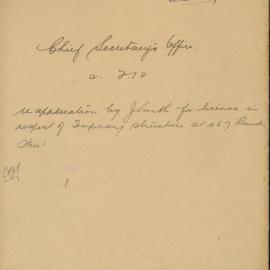 Chief Secretary's Office.
re application by J Smith for license in
respect of Temporary structure at
Street